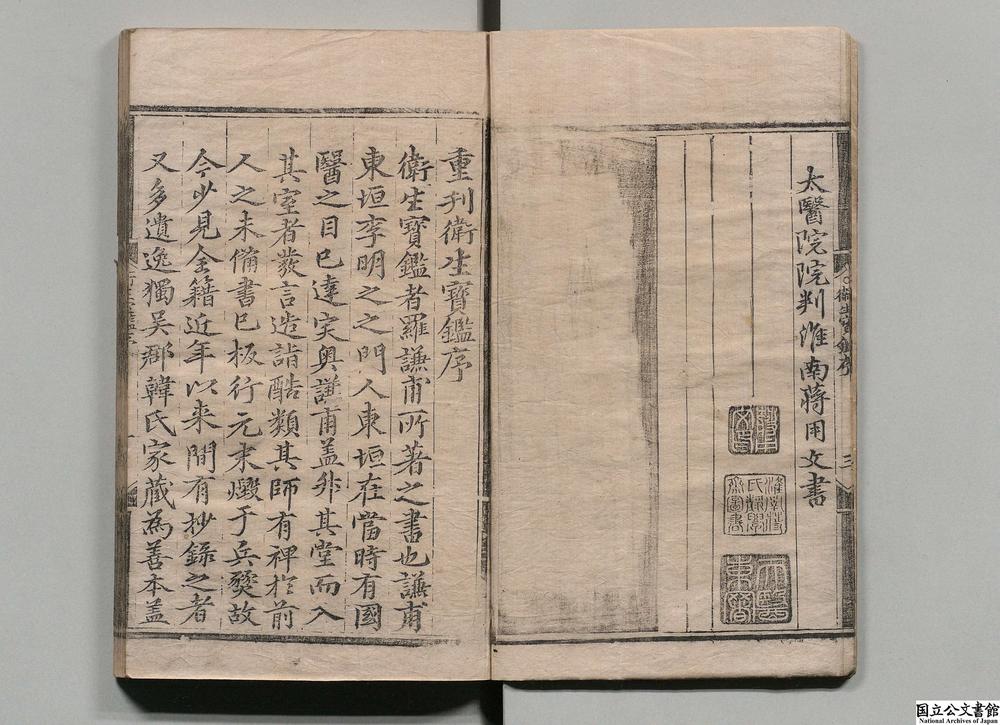 太醫院院判淮南蔣用文書
衛生寶鑑序
三
重刊衛生寶鑑序
衛生寶鑑者羅謙甫所著之書也謙甫
東垣李明之之門人東垣在當時有國
醫之目已達突奥謙甫盖升其堂而入
其室者發言造詣酷類其師有裨於前
人之未備書已板行元末燬于兵燹故
今少見全籍近年以来間有抄錄之者
又多遺逸獨吳郡韓氏家藏為善本盖
国立公文書館
National Archives of Japan